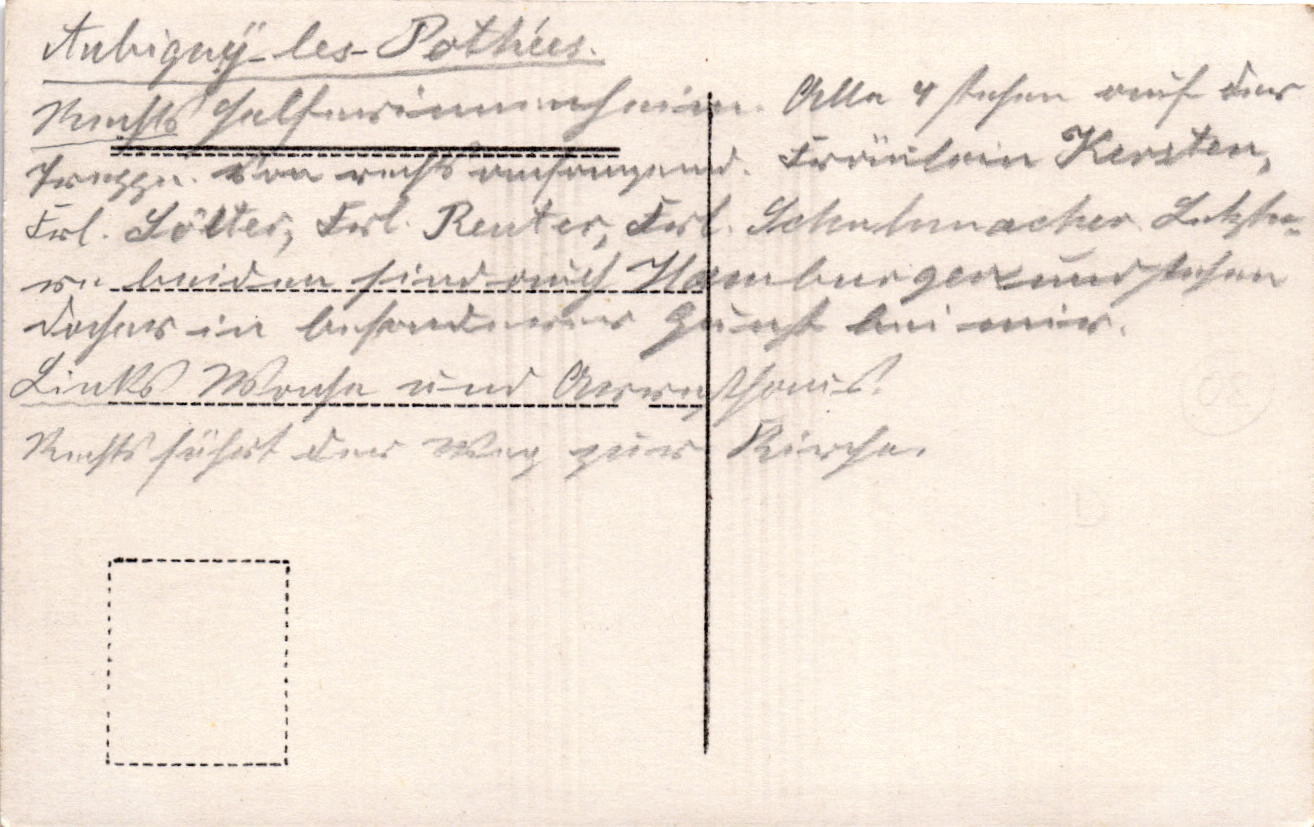 Aubigny-les-Pothées.
Rechts Helferinnenheim. Alle 4 stehen auf der
Treppe. Von rechts anfangend. Fräulein Kersten,
Frl. Sölter, Frl. Reuter, Frl. Schuhmacher. Letzte-
re beiden sind auch Hamburger und stehen
daher in besonderer Gunst bei mir.
Links Wache und
Rechts führt der Weg zur Kirche.
30